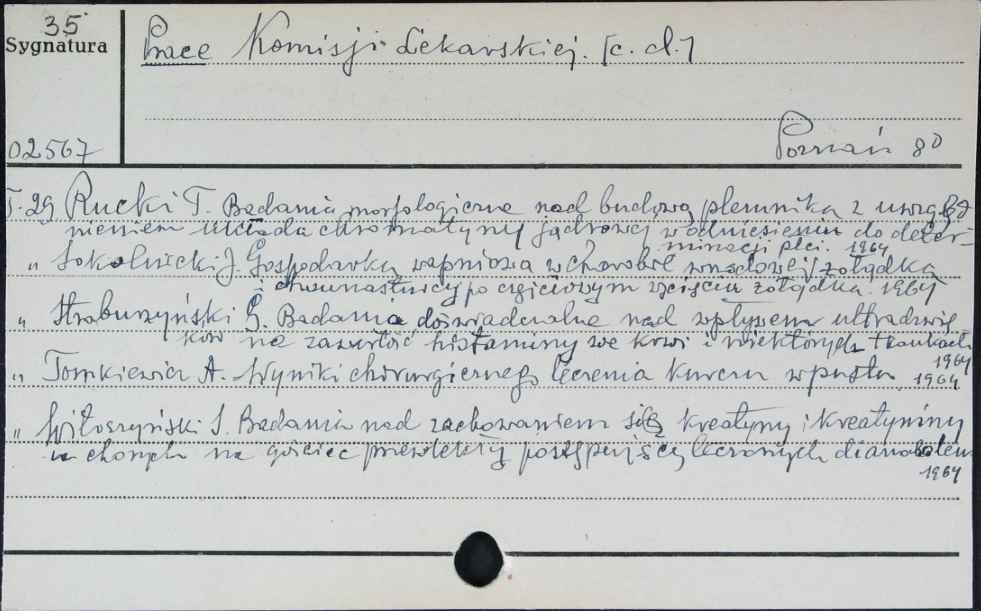 35
Sygnatura
Prace Komisji Lekarskiej. [c. d.]
Poznań 80
02567
T. 29 Rucki T. Badania morfologiczne nad budową plemnika z uwzględ
nieniem układu chromatyny jądrowej w odniesieniu do deter-
minacji płci. 1964
„ Sokolnicki J. Gospodarka wapniowa w chorobie wrzodowej żołądka
i dwunastnicy po częściowym wycięciu żołądka. 1964
„ Straburzyński G. Badania doświadczalne nad wpływem ultradźwię
ków na zawartość histaminy we krwi i niektórych tkankach
1964
„ Tomkiewicz A. Wyniki chirurgicznego leczenia kurczu wpustu. 1964
„ Witoszyński S. Badania nad zachowaniem się kreatyny i kreatyniny
u chorych na gościec przewlekły postępujący leczonych dianabolem
1964